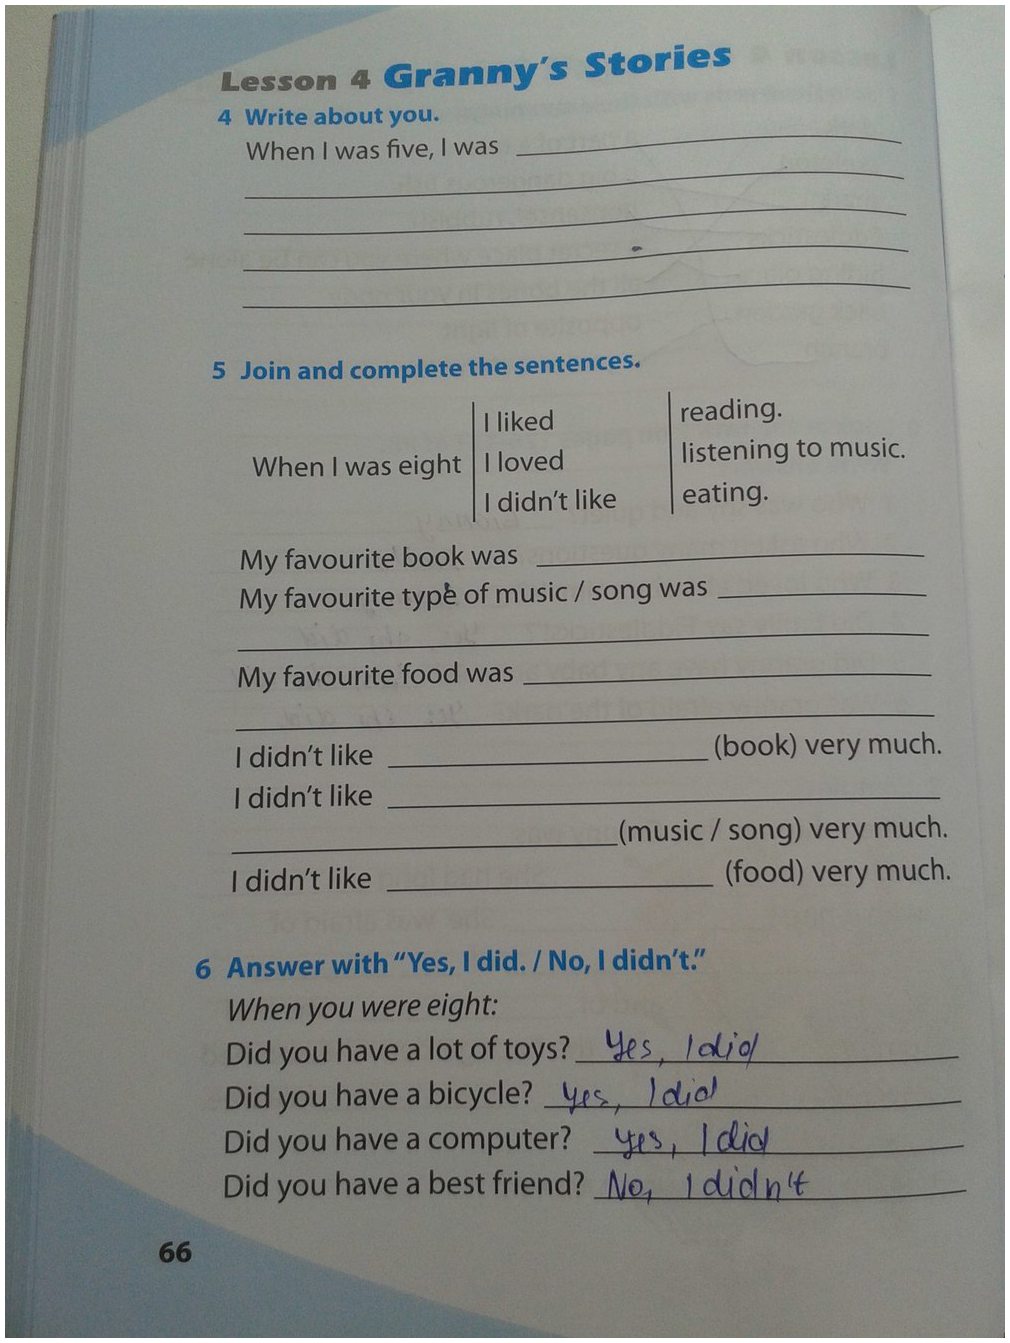 Lesson 4 Granny's Stories
4 Write about you.
When I was five, I was
5 Join and complete the sentences.
When I was eight
I liked
I loved
I didn't like
reading.
listening to music.
eating.
My favourite book was
My favourite type of music / song was
My favourite food was
I didn't like (book) very much.
I didn't like
(music / song) very much.
I didn't like (food) very much.
6 Answer with "Yes, I did. / No, I didn't."
When you were eight:
Did you have a lot of toys? Yes, I did
Did you have a bicycle? Yes, I did
Did you have a computer? Yes, I did
Did you have a best friend? No, I didn't
66